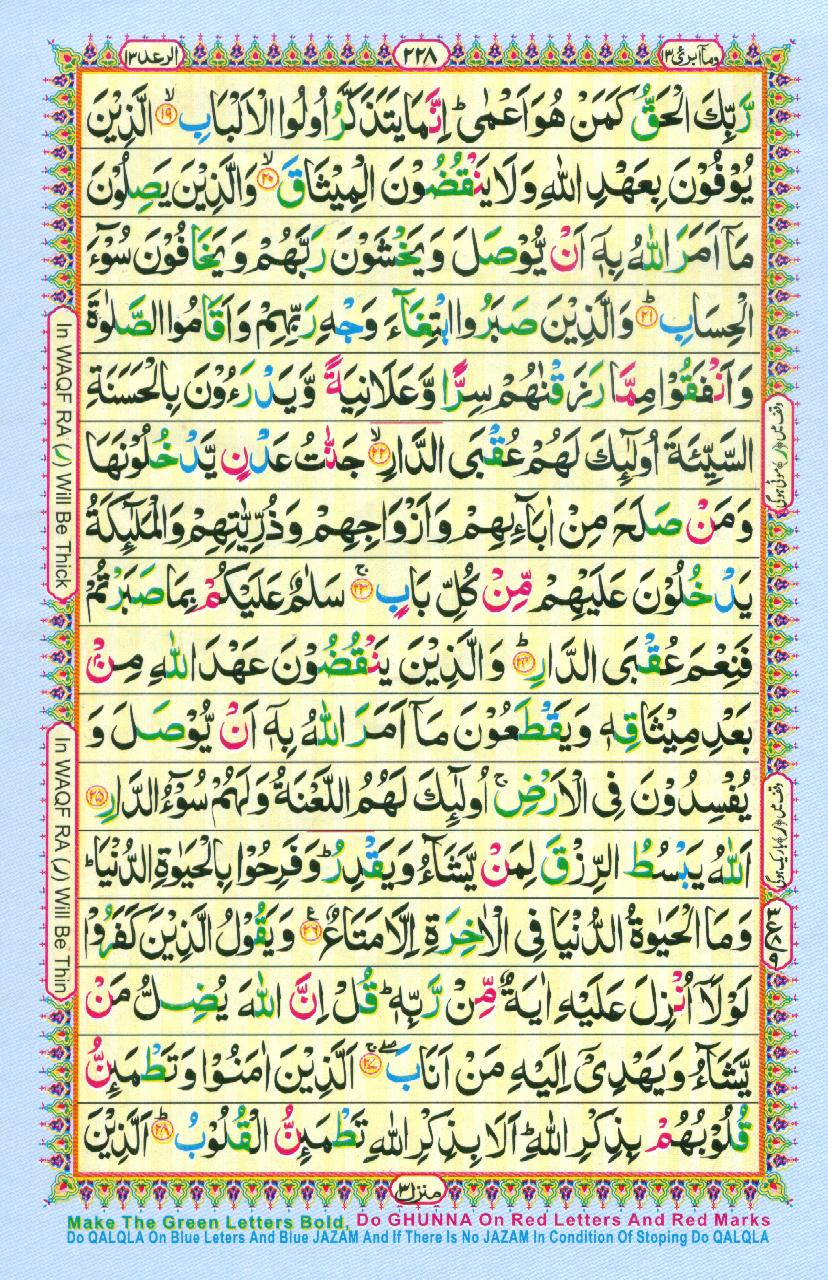 وما ابرئ ١٣
٢٢٨
الرعد ١٣
رَّبِّكَ الْحَقُّ كَمَنْ هُوَ اَعْمٰى ؕ اِنَّمَا يَتَذَكَّرُ اُولُوا الْاَلْبَابِ ۙ﴿۱۹﴾ الَّذِيْنَ
يُوْفُوْنَ بِعَهْدِ اللّٰهِ وَلَا يَنْقُضُوْنَ الْمِيْثَاقَ ۙ﴿۲۰﴾ وَالَّذِيْنَ يَصِلُوْنَ
مَاۤ اَمَرَ اللّٰهُ بِهٖۤ اَنْ يُّوْصَلَ وَيَخْشَوْنَ رَبَّهُمْ وَيَخَافُوْنَ سُوْٓءَ
الْحِسَابِ ؕ﴿۲۱﴾ وَالَّذِيْنَ صَبَرُوا ابْتِغَآءَ وَجْهِ رَبِّهِمْ وَاَقَامُوا الصَّلٰوةَ
وَاَنْفَقُوْا مِمَّا رَزَقْنٰهُمْ سِرًّا وَّعَلَانِيَةً وَّيَدْرَءُوْنَ بِالْحَسَنَةِ
السَّيِّئَةَ اُولٰٓئِكَ لَهُمْ عُقْبَى الدَّارِ ۙ﴿۲۲﴾ جَنّٰتُ عَدْنٍ يَّدْخُلُوْنَهَا
وَمَنْ صَلَحَ مِنْ اٰبَآئِهِمْ وَاَزْوَاجِهِمْ وَذُرِّيّٰتِهِمْ وَالْمَلٰٓئِكَةُ
يَدْخُلُوْنَ عَلَيْهِمْ مِّنْ كُلِّ بَابٍ ۚ﴿۲۳﴾ سَلٰمٌ عَلَيْكُمْ بِمَا صَبَرْتُمْ
فَنِعْمَ عُقْبَى الدَّارِ ؕ﴿۲۴﴾ وَالَّذِيْنَ يَنْقُضُوْنَ عَهْدَ اللّٰهِ مِنْۢ
بَعْدِ مِيْثَاقِهٖ وَيَقْطَعُوْنَ مَاۤ اَمَرَ اللّٰهُ بِهٖۤ اَنْ يُّوْصَلَ وَ
يُفْسِدُوْنَ فِى الْاَرْضِ ۙ اُولٰٓئِكَ لَهُمُ اللَّعْنَةُ وَلَهُمْ سُوْٓءُ الدَّارِ ﴿۲۵﴾
اَللّٰهُ يَبْسُطُ الرِّزْقَ لِمَنْ يَّشَآءُ وَيَقْدِرُ ؕ وَفَرِحُوْا بِالْحَيٰوةِ الدُّنْيَا ؕ
وَمَا الْحَيٰوةُ الدُّنْيَا فِى الْاٰخِرَةِ اِلَّا مَتَاعٌ ﴿۲۶﴾ وَيَقُوْلُ الَّذِيْنَ كَفَرُوْا
لَوْلَاۤ اُنْزِلَ عَلَيْهِ اٰيَةٌ مِّنْ رَّبِّهٖ ؕ قُلْ اِنَّ اللّٰهَ يُضِلُّ مَنْ
يَّشَآءُ وَيَهْدِىْۤ اِلَيْهِ مَنْ اَنَابَ ۖۚ﴿۲۷﴾ اَلَّذِيْنَ اٰمَنُوْا وَتَطْمَئِنُّ
قُلُوْبُهُمْ بِذِكْرِ اللّٰهِ ؕ اَلَا بِذِكْرِ اللّٰهِ تَطْمَئِنُّ الْقُلُوْبُ ؕ﴿۲۸﴾ اَلَّذِيْنَ
منزل ٣
In WAQF RA (ر) Will Be Thick
In WAQF RA (ر) Will Be Thin
Make The Green Letters Bold, Do GHUNNA On Red Letters And Red Marks
Do QALQLA On Blue Leters And Blue JAZAM And If There Is No JAZAM In Condition Of Stoping Do QALQLA